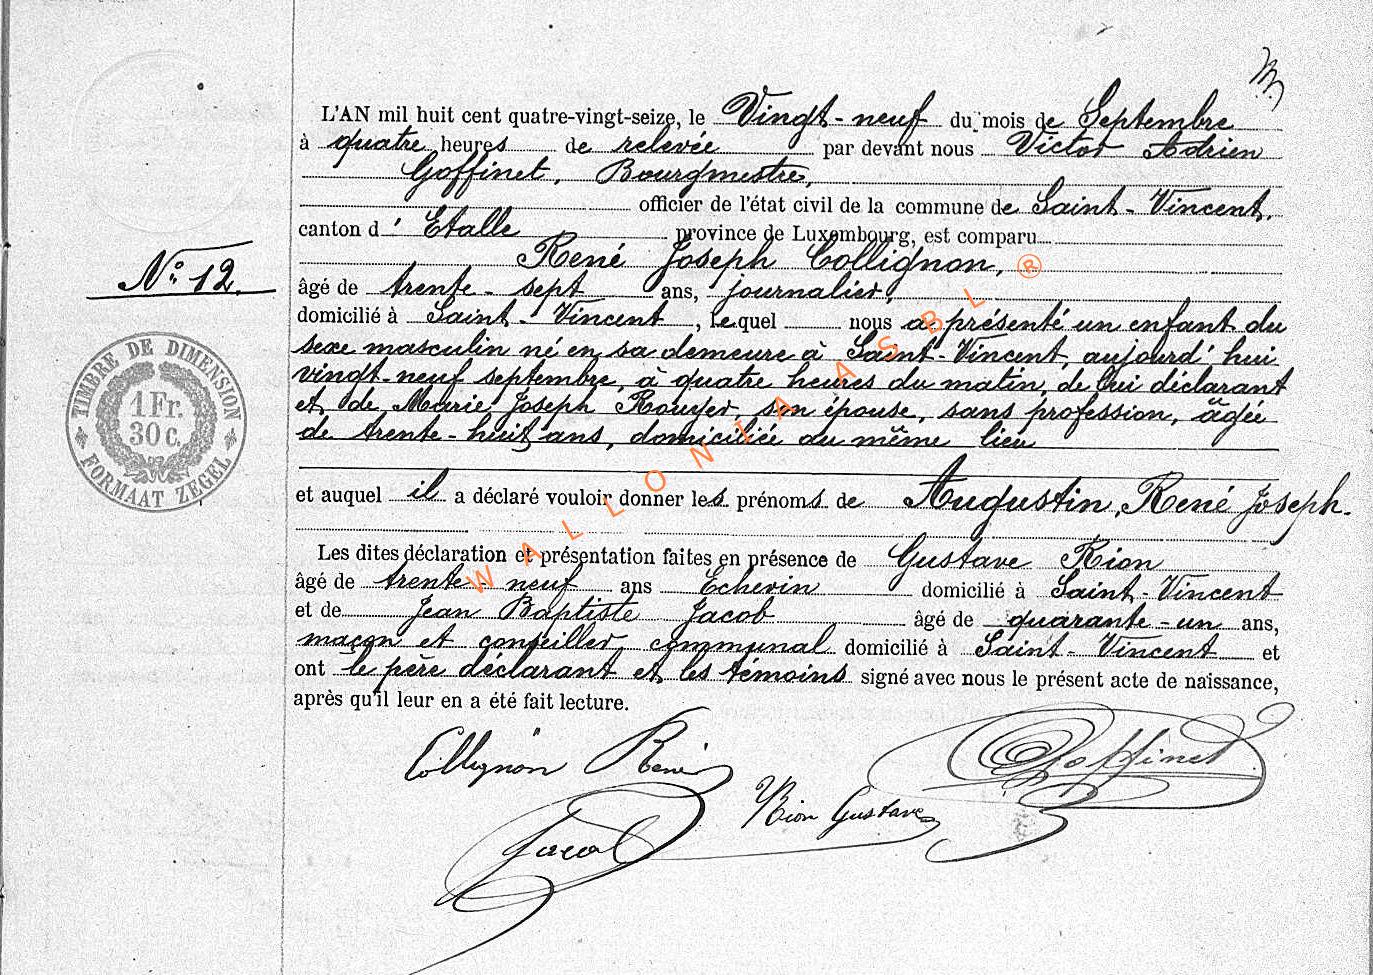 L'AN mil huit cent quatre-vingt-seize, le Vingt-neuf du mois de Septembre
à quatre heures de relevée par devant nous Victor Adrien
Goffinet, Bourgmestre,
officier de l'état civil de la commune de Saint-Vincent,
canton d' Etalle province de Luxembourg, est comparu
René Joseph Collignon,
âgé de trente-sept ans, journalier,
domicilié à Saint-Vincent, lequel nous a présenté un enfant du
sexe masculin né en sa demeure à Saint-Vincent, aujourd'hui
vingt-neuf septembre, à quatre heures du matin, de lui déclarant
et de Marie Joseph Rouyer, son épouse, sans profession, âgée
de trente-huit ans, domiciliée au même lieu
et auquel il a déclaré vouloir donner les prénoms de Augustin, René Joseph.
Les dites déclaration et présentation faites en présence de Gustave Rion
âgé de trente-neuf ans Echevin domicilié à Saint-Vincent
et de Jean Baptiste Jacob âgé de quarante-un ans,
maçon et conseiller communal domicilié à Saint-Vincent et
ont le père déclarant et les témoins signé avec nous le présent acte de naissance,
après qu'il leur en a été fait lecture.
Collignon René
Goffinet
Rion Gustave
Jacob
N° 12.
TIMBRE DE DIMENSION
1 Fr.
30 C.
FORMAAT ZEGEL
WALLONIA ASBL ®